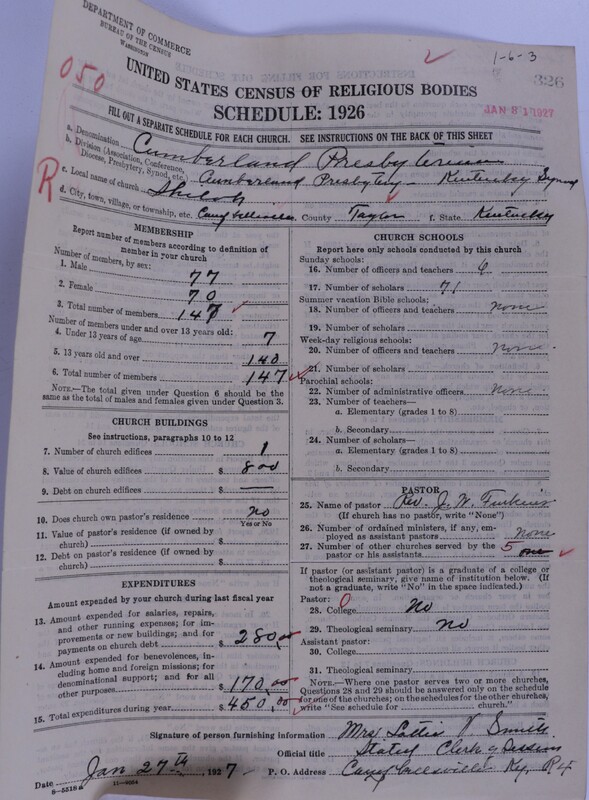 DEPARTMENT OF COMMERCE
BUREAU OF THE CENSUS
WASHINGTON
1-6-3
326
050
UNITED STATES CENSUS OF RELIGIOUS BODIES
SCHEDULE: 1926
JAN 31 1927
FILL OUT A SEPARATE SCHEDULE FOR EACH CHURCH. SEE INSTRUCTIONS ON THE BACK OF THIS SHEET
a. Denomination Cumberland Presbyterian
b. Division (Association, Conference, Diocese, Presbytery, Synod, etc.) Cumberland Presbytery - Kentucky Synod
R
c. Local name of church Shiloh
d. City, town, village, or township, etc. Campbellsville County Taylor f. State Kentucky
MEMBERSHIP
Report number of members according to definition of member in your church
Number of members, by sex:
1. Male 77
2. Female 70
3. Total number of members 147
Number of members under and over 13 years old:
4. Under 13 years of age 7
5. 13 years old and over 140
6. Total number of members 147
NOTE.—The total given under Question 6 should be the same as the total of males and females given under Question 3.
CHURCH BUILDINGS
See instructions, paragraphs 10 to 12
7. Number of church edifices 1
8. Value of church edifices $ 800
9. Debt on church edifices $ —
10. Does church own pastor's residence no
Yes or No
11. Value of pastor's residence (if owned by church) $
12. Debt on pastor's residence (if owned by church) $
EXPENDITURES
Amount expended by your church during last fiscal year
13. Amount expended for salaries, repairs, and other running expenses; for improvements or new buildings; and for payments on church debt $ 280.00
14. Amount expended for benevolences, including home and foreign missions; for denominational support; and for all other purposes $ 170.00
15. Total expenditures during year $ 450.00
CHURCH SCHOOLS
Report here only schools conducted by this church
Sunday schools:
16. Number of officers and teachers 6
17. Number of scholars 71
Summer vacation Bible schools:
18. Number of officers and teachers none
19. Number of scholars
Week-day religious schools:
20. Number of officers and teachers none
21. Number of scholars
Parochial schools:
22. Number of administrative officers None
23. Number of teachers—
a. Elementary (grades 1 to 8)
b. Secondary
24. Number of scholars—
a. Elementary (grades 1 to 8)
b. Secondary
PASTOR
25. Name of pastor Rev. J. W.
(If church has no pastor, write "None")
26. Number of ordained ministers, if any, employed as assistant pastors none
27. Number of other churches served by the pastor or his assistants 5
If pastor (or assistant pastor) is a graduate of a college or theological seminary, give name of institution below. (If not a graduate, write "No" in the space indicated.)
Pastor: 0
28. College No
29. Theological seminary no
Assistant pastor:
30. College
31. Theological seminary
NOTE.—Where one pastor serves two or more churches, Questions 28 and 29 should be answered only on the schedule for one of the churches; on the schedules for the other churches, write "See schedule for church."
Signature of person furnishing information Mrs Lottie V. Smith
Official title Stated Clerk of Session
Date Jan 27th 1927 P. O. Address Campbellsville Ky.
8-5518a 11-9064